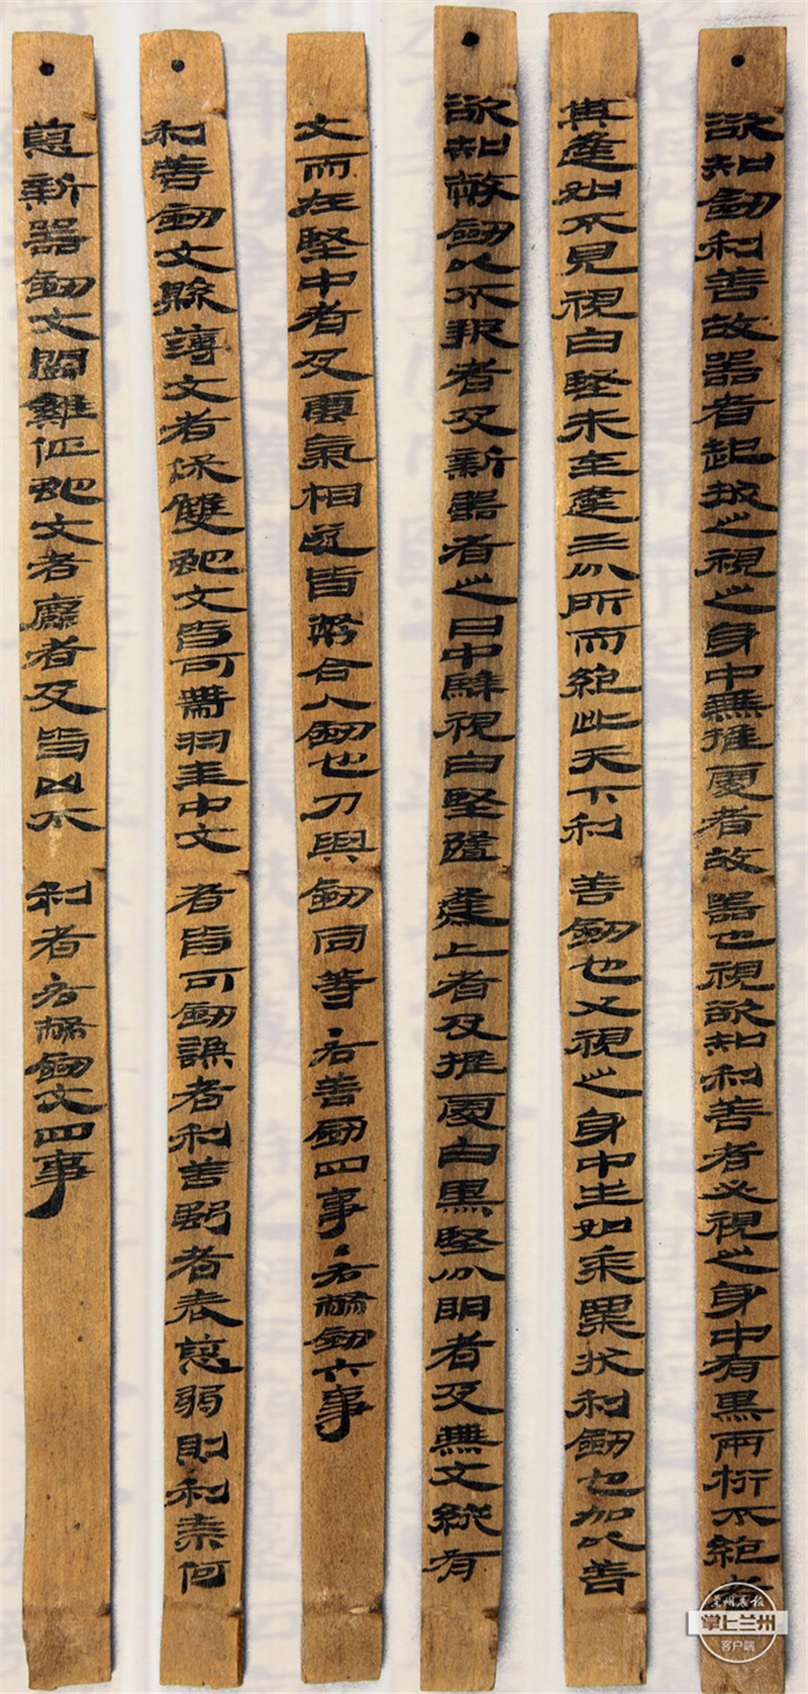 ●欲知劒利善故器者起拔之視之身中無推處者故器也視欲知利善者必視之身中有黑兩桁不絶者
其逢如不見視白堅未至逢三分所而絶此天下利善劒也又視之身中生如黍粟狀利劒也加以善
●欲知幣劒以不報者及新器者之日中騂視白堅隨逢上者及推處白黑堅分明者及無文縱有
文而在堅中者及雲氣相遂皆幣合人劒也刀與劒同等·右善劒四事·右幣劒六事
●利善劒文縣薄文者保雙蛇文皆可帶羽圭中文者皆可劒謙者利善強者表恿弱則利柰何
●恿新器劒文鬬雞佂蛇文者麤者及皆凶不利者右幣劒文四事
兰州晨报
掌上兰州
客户端